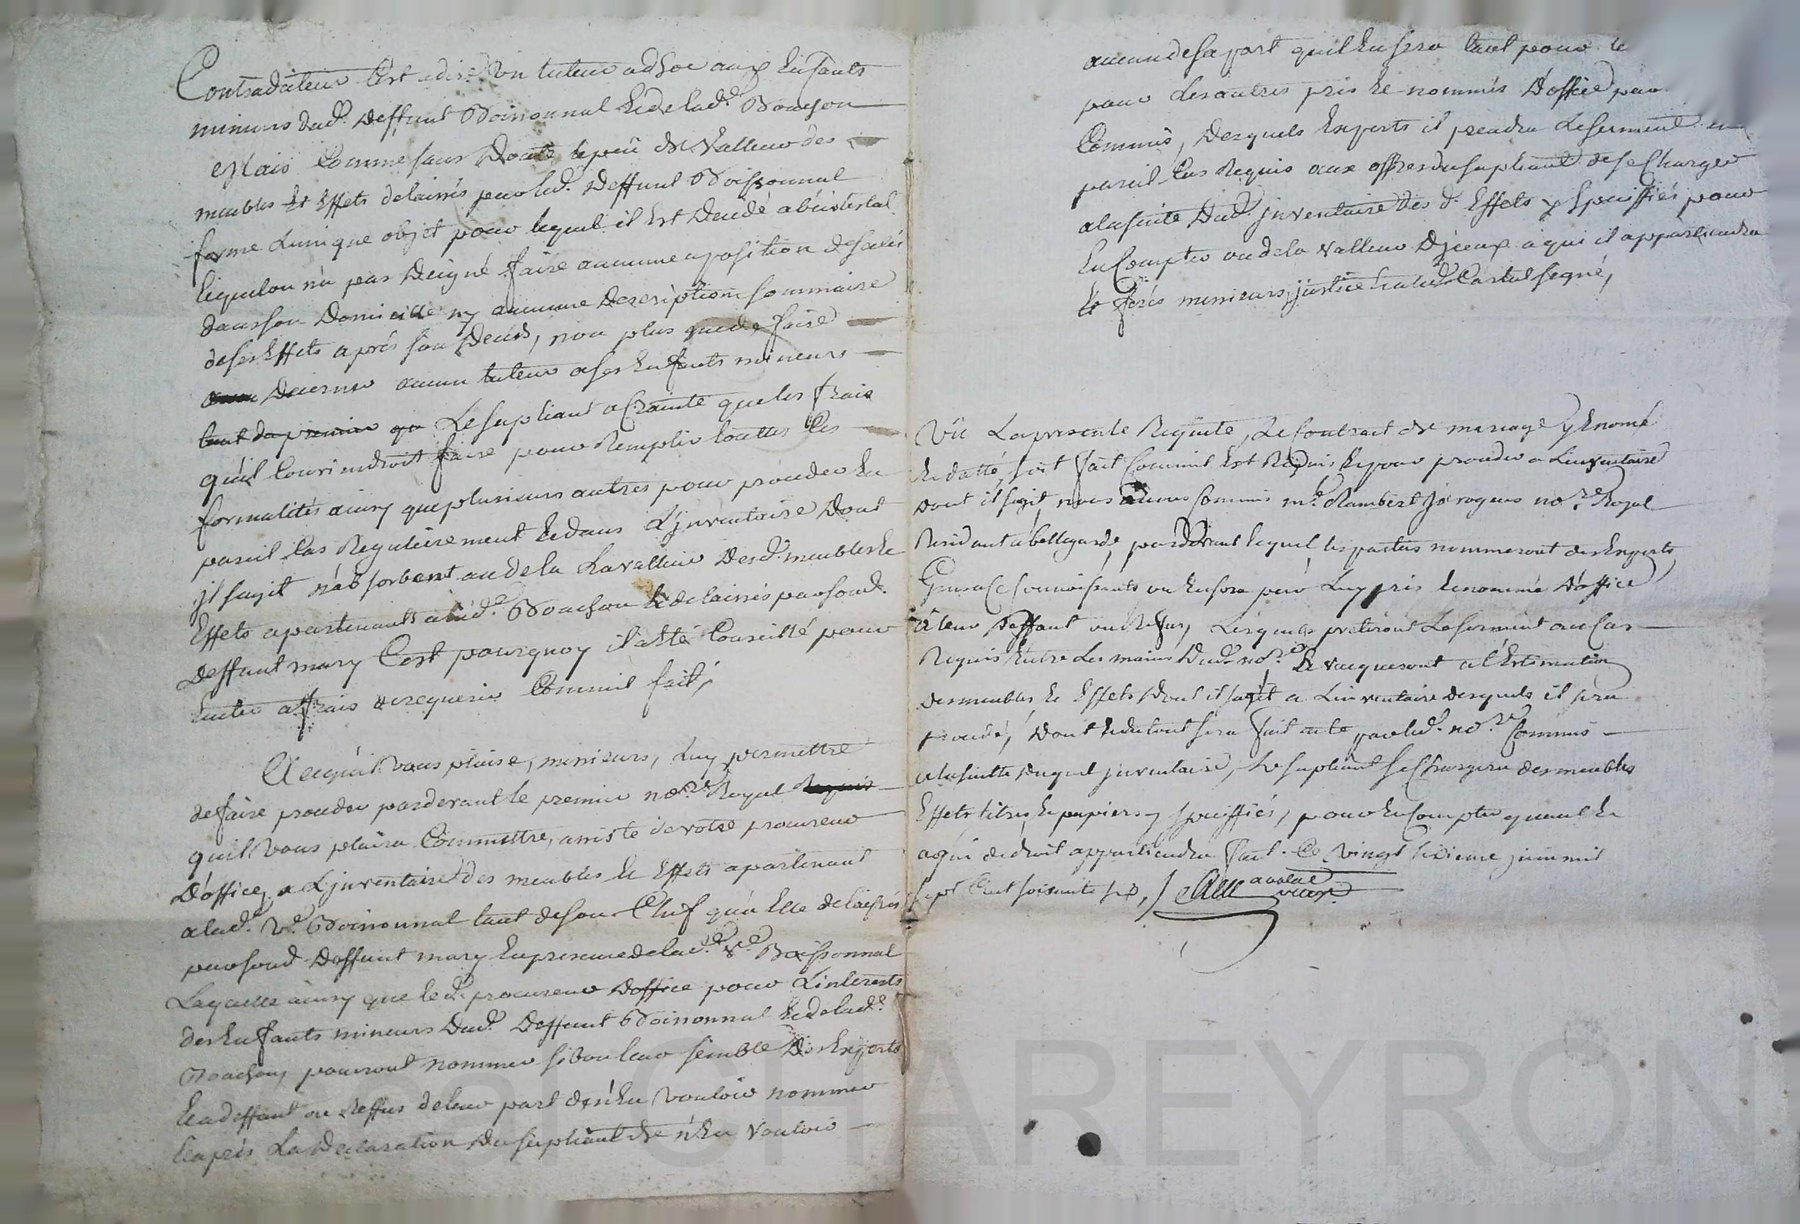 Contradicteur C'est adire un tuteur adhoc aux Enfants
mineurs dud. deffunt Boissonnal Et de lad.e Bouchou
Mais Comme sans doute le peu de Valleur des
meubles Et Effets delaissés par led. deffunt Boissonnal
forme Lunique objet pour lequel il Est decedé abintestat
lequel on n'a pas daigné faire aucune aposition de scelés
dans son domicille ny aucune description sommaire
de ses Effets aprés son decés, non plus que de faire
decerner aucun tuteur a ses Enfants mineurs
Le supliant a Crainte que les frais
qu'il Conviendroit faire pour Remplir touttes Ces
formalités ainsy que plusieurs autres pour proceder En
pareil Cas Regulierement Et dans L'jnventaire dont
jl sagit n'absorbent au dela La valleur desd. meubles Et
Effets apartenants a lad.e Bouchou Et delaissés par sond.
deffunt mary C'est pourquoy il a été Conseillé pour
Eviter a frais requerir Commit fait,
A Ce qu'il vous plaise, messieurs, Luy permettre
de faire proceder pardevant le premier no.re Royal
quil vous plaira Commettre, assisté de votre procureur
d'office, a L'jnventaire des meubles Et Effets apartenant
a lad.e v.e Boissonnal tant de son Chef qu'a Elle delaissés
par sond. deffunt mary En presence de lad.e v.e Boissonnal
Laquelle ainsy que le d. procureur d'office pour L'interets
des Enfants mineurs dud. deffunt Boissonnal Et de lad.e
Bouchou, pourront nommer si bon leur semble des Experts
Et a deffaut ou Reffus de leur part de n'En vouloir nommer
Et aprés La declaration du supliant de n'En vouloir
aucun de sa part quil En sera tant pour
pour Les autres pris Et nommés d'office par
Commis, desquels Experts il prendra Le serment en
pareil Cas Requis aux offres du supliant de se Charger
a la suite dud. jnventaire des d. Effets y Speciffiés pour
En Compter ou de la valleur d'jceux a qui il appartiendra
Et ferés messieurs, justice
Vû La presente Requete, Le Contrat de mariage y Enoncé
Et datté, soit fait Commit Est Requis Et pour proceder a Linventaire
dont il sagit, nous avons Commis m.e Rambert no.re Royal
Residant a bellegarde, pardevant lequel les parties nommeront des Experts
Gens a Ce Connoissants ou En sera par Luy pris Et nommé d'office
a leur deffaut ou Refus, Lesquels preteront Le serment au Cas
Requis Entre Les mains dud. no.re Et vaqueront a l'Estimation
des meubles Et Effets dont il sagit a Linventaire desquels il sera
procedé, dont Et du tout sera fait acte par led. no.re Commis
a la suitte duquel jnventaire, Le supliant se Chargera des meubles
Effets titres, Et papiers y speciffiés, pour En Compter quand Et
a qui de droit appartiendra fait Ce vingt sixieme juin mil
sept Cent soixante